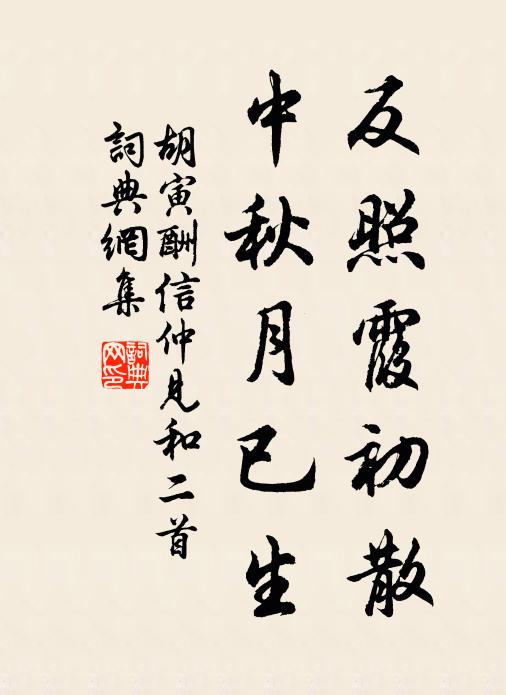 反照霞初散
中秋月已生
胡寅酬信仲見和二首
詞典網集
詞典
网印